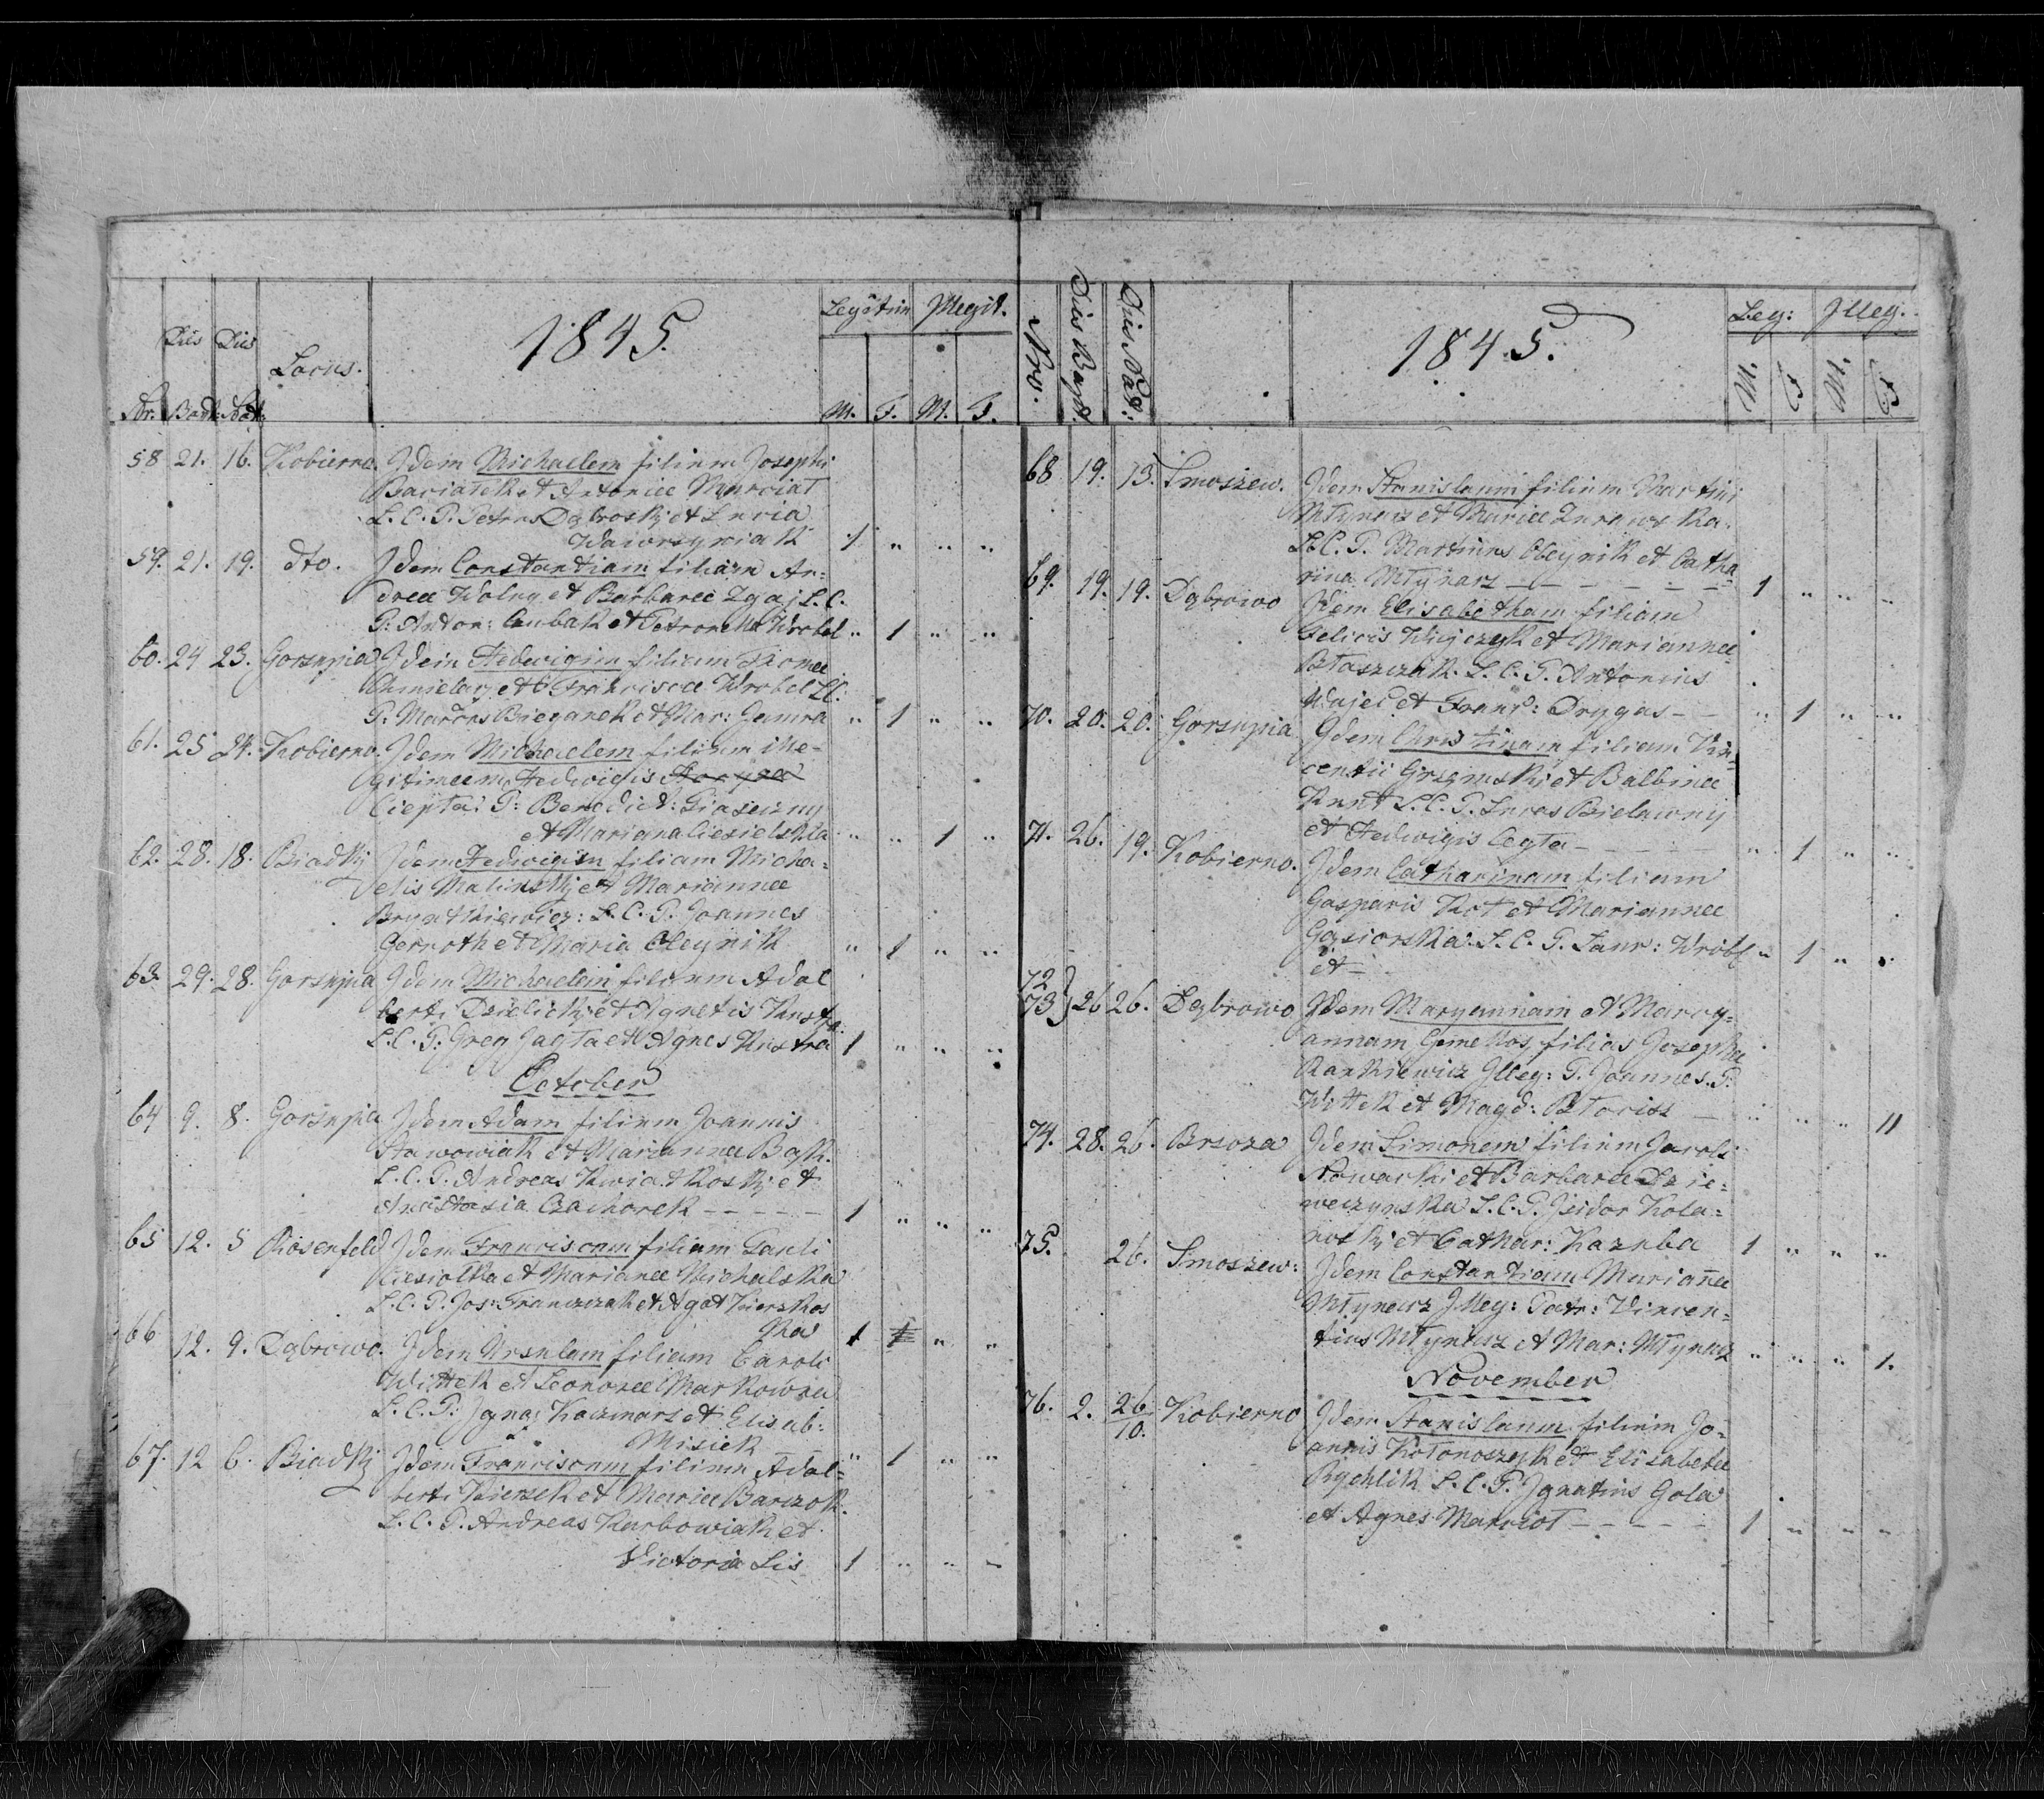 Nr. Dies Bapt: Dies Nat: Locus. 1845. Legitim Illegit.
M. F. M. F.
58 21. 16. Kobierno. Idem Michaelem filium Josephi
Baciatek et Antoniee Marciat
L. C. P. Petrus Dąbroskj et Lucia
Wawrzyniak 1 " " "
59. 21. 19. dto. Idem Constantiam filiam An=
dreee Wolny et Barbaree Zgaj L. C.
P: Anton: Czubak et Petronella Wrobel " 1 " "
60. 24 23. Gorzupia Idem Hedwigim filiam Thomee
Chmielarz et Franciscee Wrobel LC.
P. Marcus Bieganek et Mar: Jamra " 1 " "
61. 25 24. Kobierno. Idem Michaelem filium ille-
gitimeem Hedwigis
Ciepta: P: Benedict:
et Mariana Ciesielska " " 1 "
62. 28. 18. Biadkj Idem Hedwigim filiam Micha=
elis Malinskj et Mariannee
Bryntkiewicz: L. C. P. Joannes
Gerroth et Maria Oleynik " 1 " "
63. 29. 28. Gorzupia Idem Michaelem filium Adal
berti Dzielickj et Agnetis Kustra.
L. C. P: Greg Jagta et Agnes Kustra 1 " " "
October
64 9. 8. Gorzupia Idem Adam filium Joannis
Stawowiak et Mariannee Bąk.
L. C. P. Andreas Kwiatkoskj et
Anastasia Czachorek - - - - - 1 " " "
65 12. 5 Rosenfeld Idem Franciscum filium Pauli
Kiesiolka et Marianee Michalska
L. C. P. Jos: Franczczak et Agat Kierzkos
ka 1 " "
66 12. 9. Dąbrowo. Idem Ursulam filiam Caroli
Wittek et Leonoree Markowna
L. C. P: Ignaz Kaczmarz et Elisab:
Misiek " 1 " "
67. 12 6. Biadkj Idem Franciscum filium Adal=
berti Kierzek et Mariee Barczok.
L. C. P. Andreas Karbowiak et
Victoria Lis 1 " " "
Nro. Dies Bapt. Dies Nat: 1845. Leg: Illeg.
M. F. M. F.
68 19. 13. Smoszew. Idem Stanislaum filium Martini
Młynarz et Mariee Zurawska.
L. C. P. Martinus Oleynik et Catha
rina Młynarz - - - - - 1 " " "
69. 19. 19. Dąbrowo Idem Elisabetham filiam
Felicis Wujczyk et Mariannee
Błaszczak. L. C. P. Antonius
Wujec et Franc: Drygas - - " 1 " "
70. 20. 20. Gorzupia Idem Christinam filiam Vin=
centii Grzymskj et Balbinee
Kunt L. C. P. Lucas Bielawnij
et Hedwigis Cegta - - - - - " 1 " "
71. 26. 19. Kobierno. Idem Catharinam filiam
Gasparis Kot et Mariannee
Gąsiorska. L. C. P. Laur: Wróbl " 1 " "
et -
72
73} 26 26. Dąbrowo Idem Maryannam et Marcy=
annam Gemellos filias Josephee
Rankiewicz Illeg: P. Joannes. P:
Wittek et Magd: Ptoriss - " " " 11
74. 28. 26. Brzoza Idem Simonem filium Jacobi
Nowacki et Barbaree Dzie=
weczynska L. C. P. Isidor Kola=
noskj et Cathar: Kazuba 1 " " "
75. 26. Smoszew: Idem Constantiam Mariañee
Młynarz Illeg: Patr: Vincen=
tius Młynarz et Mar: Młynarz " " " 1.
November
76. 2. 26/10. Kobierno Idem Stanislaum filium Jo=
annis Kotonoszyk et Elisabetee
Rychlik L. C. P. Ignatius Gola
et Agnes Marciot - - - - - 1 " " "